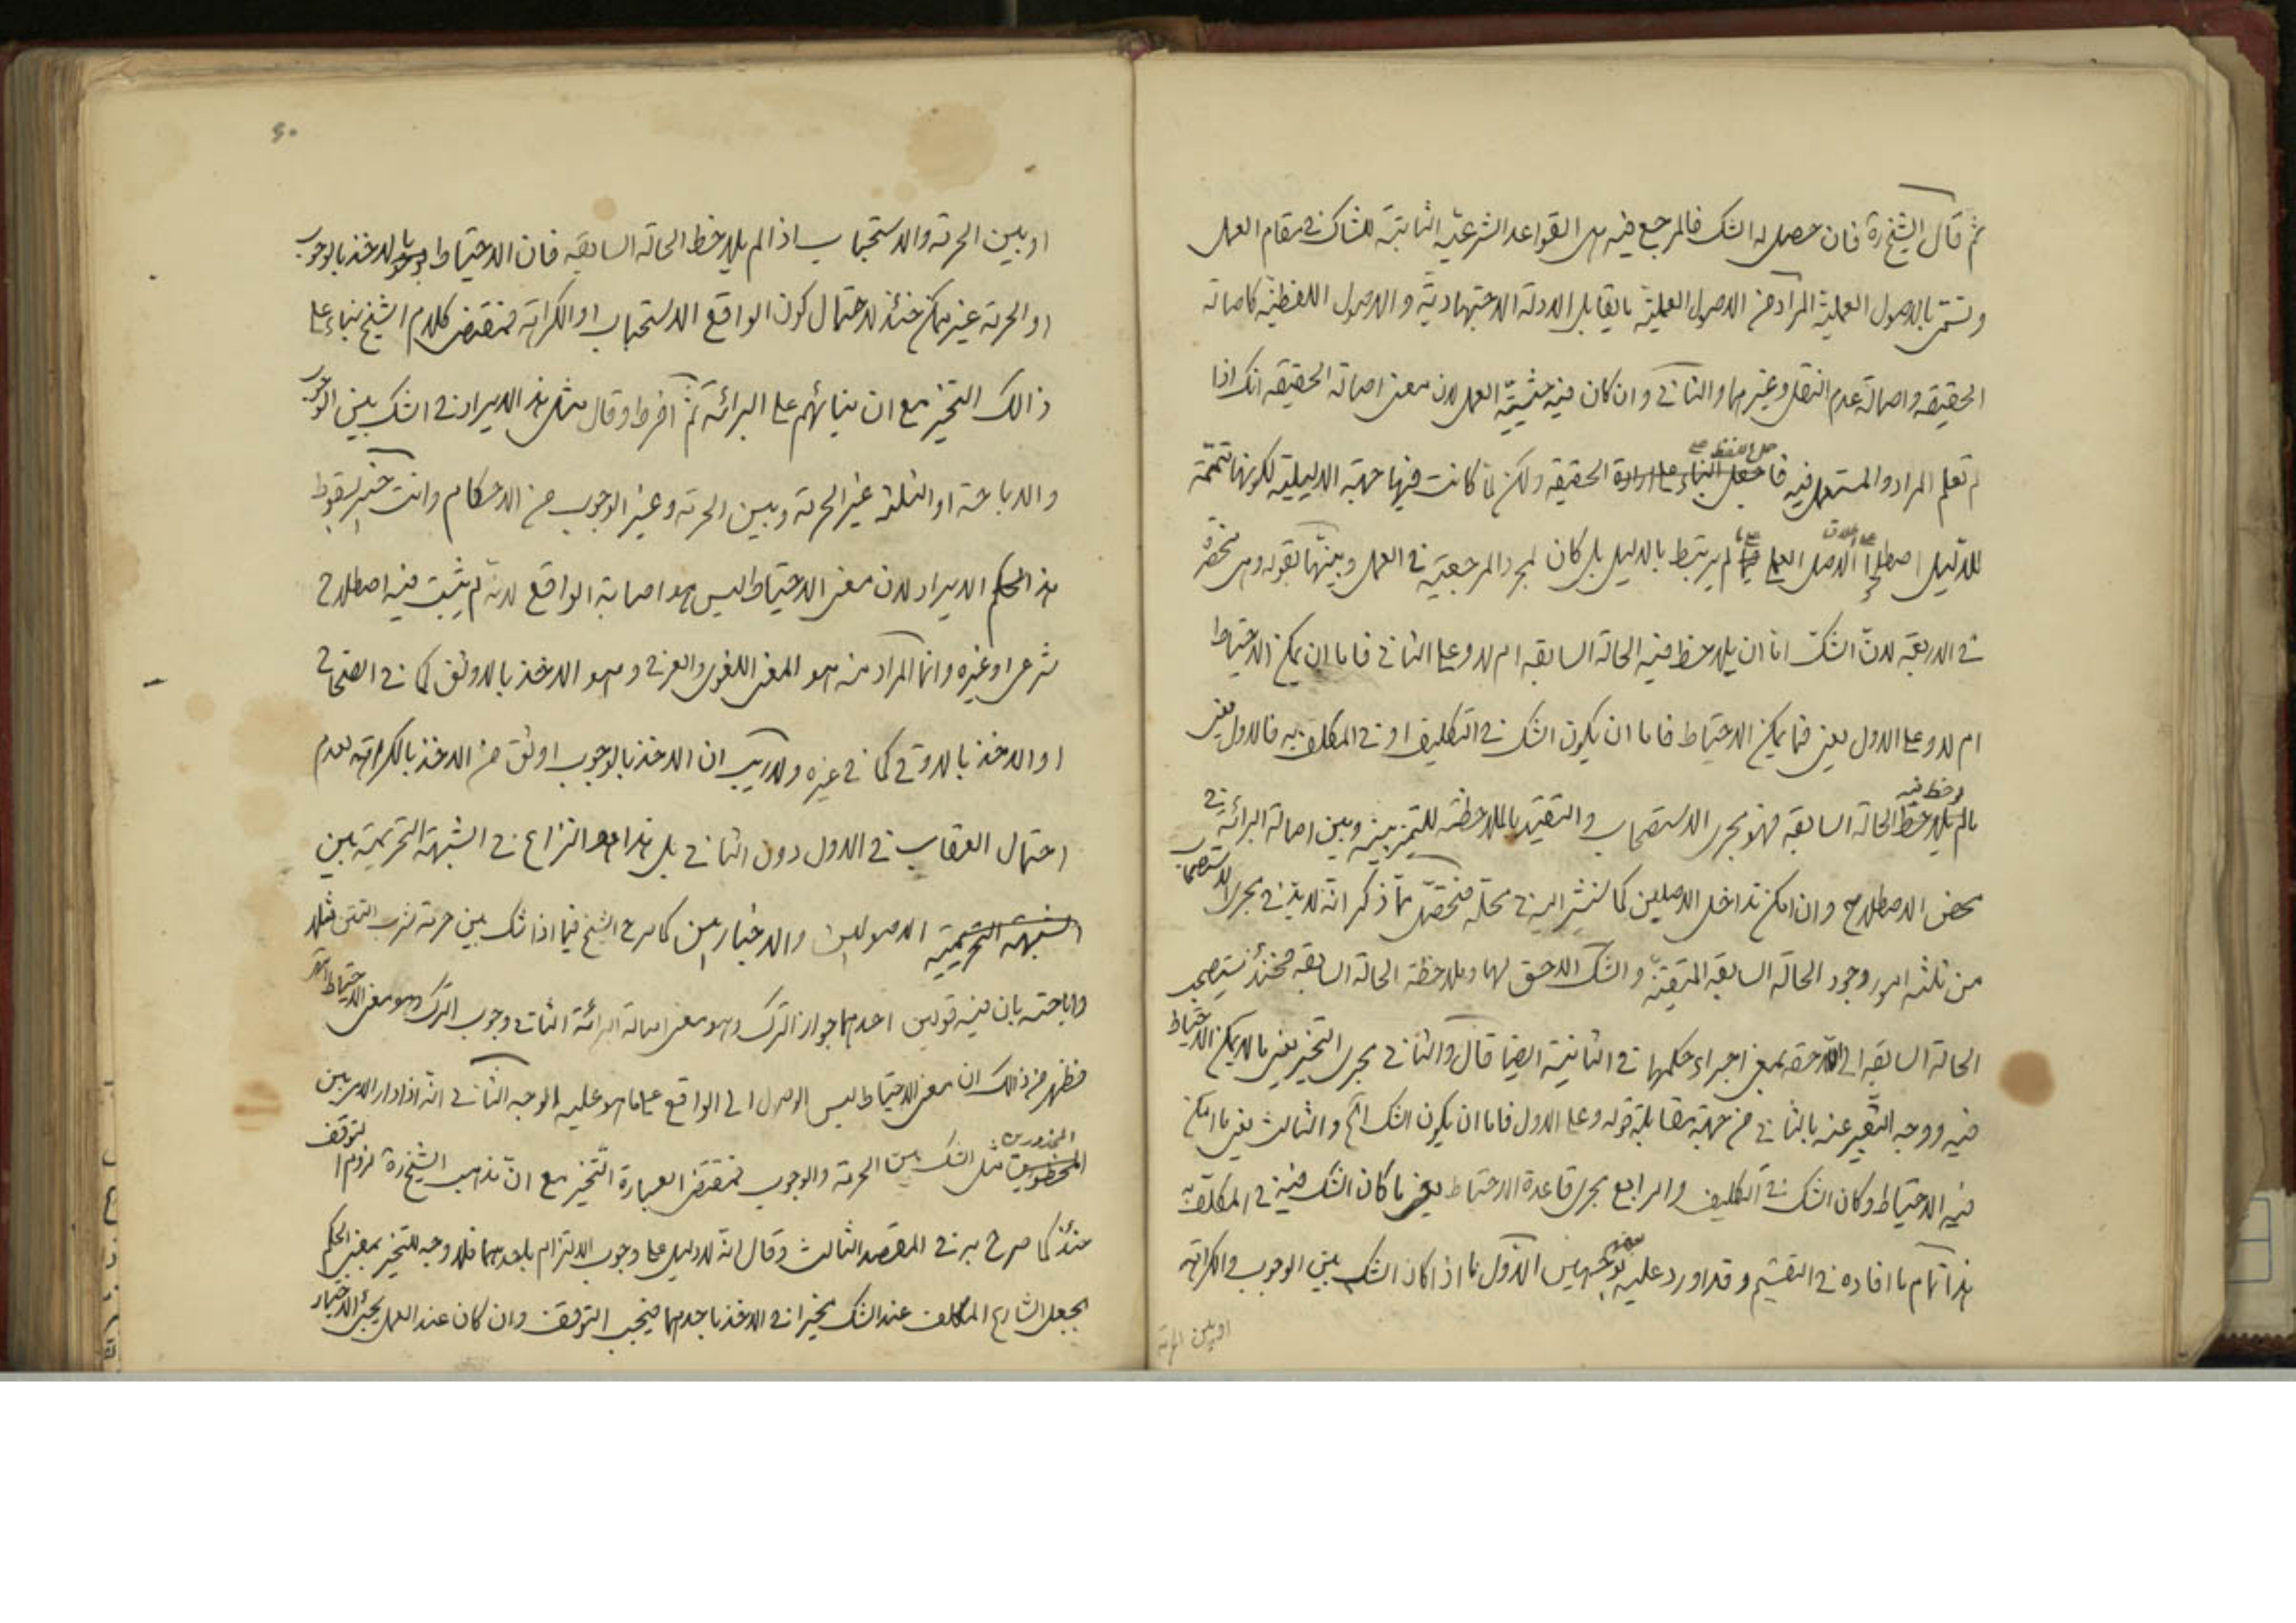 ثم قال الشيخ ره فان حصل له الشك فالمرجع فيه هى القواعد الشرعيّه الثابتة للشاك فى مقام العمل
وتسمّى بالاصول العمليّة المراد من الاصول العمليّة ما يقابل الادلة الاجتهادية و الاصول اللفظيّة كاصالة
الحقيقه واصالة عدم النقل وغيرهما والثانى وان كان فيه حيثيّة العمل لان معنى اصالة الحقيقه انك اذا
لم تعلم المراد والمستعمل فيه فاجعل البناء على ارادة الحقيقه ولكن لما كانت فيها جهة الدليلية لكونها تتمّة
للدّليل اصطلح الاصل العملى لم يرتبط بالدليل بل كان لمجرد المرجعيّة فى العمل وبينّها بقوله وهى منحصرة
فى اربعة لانّ الشكّ امّا ان يلاحظ فيه الحالة السابقه ام لا وعلى الثانى فاما ان يمكن الاحتياط
ام لا وعلى الاول يعنى فيما يمكن الاحتياط فاما ان يكون الشك فى التكليف او فى المكلف به فالاول يعنى
لوحظ فيه
ما لم يلاحظ الحالة السابقه فهو مجرى الاستصحاب والتقييد بالملاحظة للتميز بينه وبين اصالة البرائة فى
محض الاصطلاح وان امكن تداخل الاصلين كما نشير اليه فى محلّه فتحصّل ممّا ذكر انّه لابدّ فى مجرى الاستصحاب
من ثلثه امور وجود الحالة السابقه المتيقنّه والشك اللاحق لها وملاحظة الحالة السابقه فحينئذ يستصحب
الحالة السابقه الى اللاحقه بمعنى اجراء حكمها فى الثانية ايضا قال والثانى مجرى التخيير يعنى ما لا يمكن الاحتياط
فيه ووجه التعبير عنه بالثانى من جهة مقابلة قوله وعلى الاول فاما ان يكون الشك الخ والثالث يعنى ما امكن
فيه الاحتياط وكان الشك فى التكليف والرابع مجرى قاعدة الاحتياط يعنى ما كان الشك فيه فى المكلف به
هذا تمام ما افاده فى التقسيم وقد اورد عليه بوجهين الاول ما اذا كان الشك بين الوجوب والكراهة
او بين الحرمة
او بين الحرمة والاستحباب اذا لم يلاحظ الحالة السابقه فان الاحتياط بالاخذ بالوجوب
او الحرمة غير ممكن حينئذ لاحتمال كون الواقع الاستحباب او الكراهة فمقتضى كلام الشيخ بناء على
ذالك التخيير مع ان بنائهم على البرائة ثمّ افرط وقال مثل هذا الايراد فى الشك بين الوجوب
والاباحة او الثلثة غير الحرمة وبين الحرمة وغير الوجوب من الاحكام وانت خبير بسقوط
هذا الايراد لان معنى الاحتياط ليس هو اصابة الواقع لانه لم يثبت فيه اصطلاح
شرعى او غيره وانما المراد منه هو المعنى اللغوى والعرفى وهو الاخذ بالاوثق كما فى الصّحاح
او الاخذ بالاوقى كما فى غيره ولاريب ان الاخذ بالوجوب اوثق من الاخذ بالكراهة لعدم
احتمال العقاب فى الاول دون الثانى بل هذا هو النزاع فى الشبهة التحريمية بين
الشبهة التحريمية الاصوليين والاخباريين كما صرح الشيخ فيما اذا شك بين حرمة شرب التتن مثلا
واباحته بان فيه قولين احدهما جواز الترك وهو معنى اصالة البرائة الثانى وجوب الترك وهو معنى الاحتياط انتهى
فظهر من ذالك ان معنى الاحتياط ليس الوصول الى الواقع على ما هو عليه الوجه الثانى انّه اذا دار الامر بين
المحذورين
المحظورين مثل الشك بين الحرمة والوجوب فمقتضى العبارة التخيير مع انّ مذهب الشيخ ره لزوم التوقف
حينئذ كما صرح به فى المقصد الثالث وقال انّه لا دليل على وجوب الالتزام باحدهما فلا وجه للتخيير بمعنى الحكم
بجعل الشارع المكلف عند الشك مخيرا فى الاخذ باحدهما فيجب التوقف وان كان عند العمل يجئ الاختيار